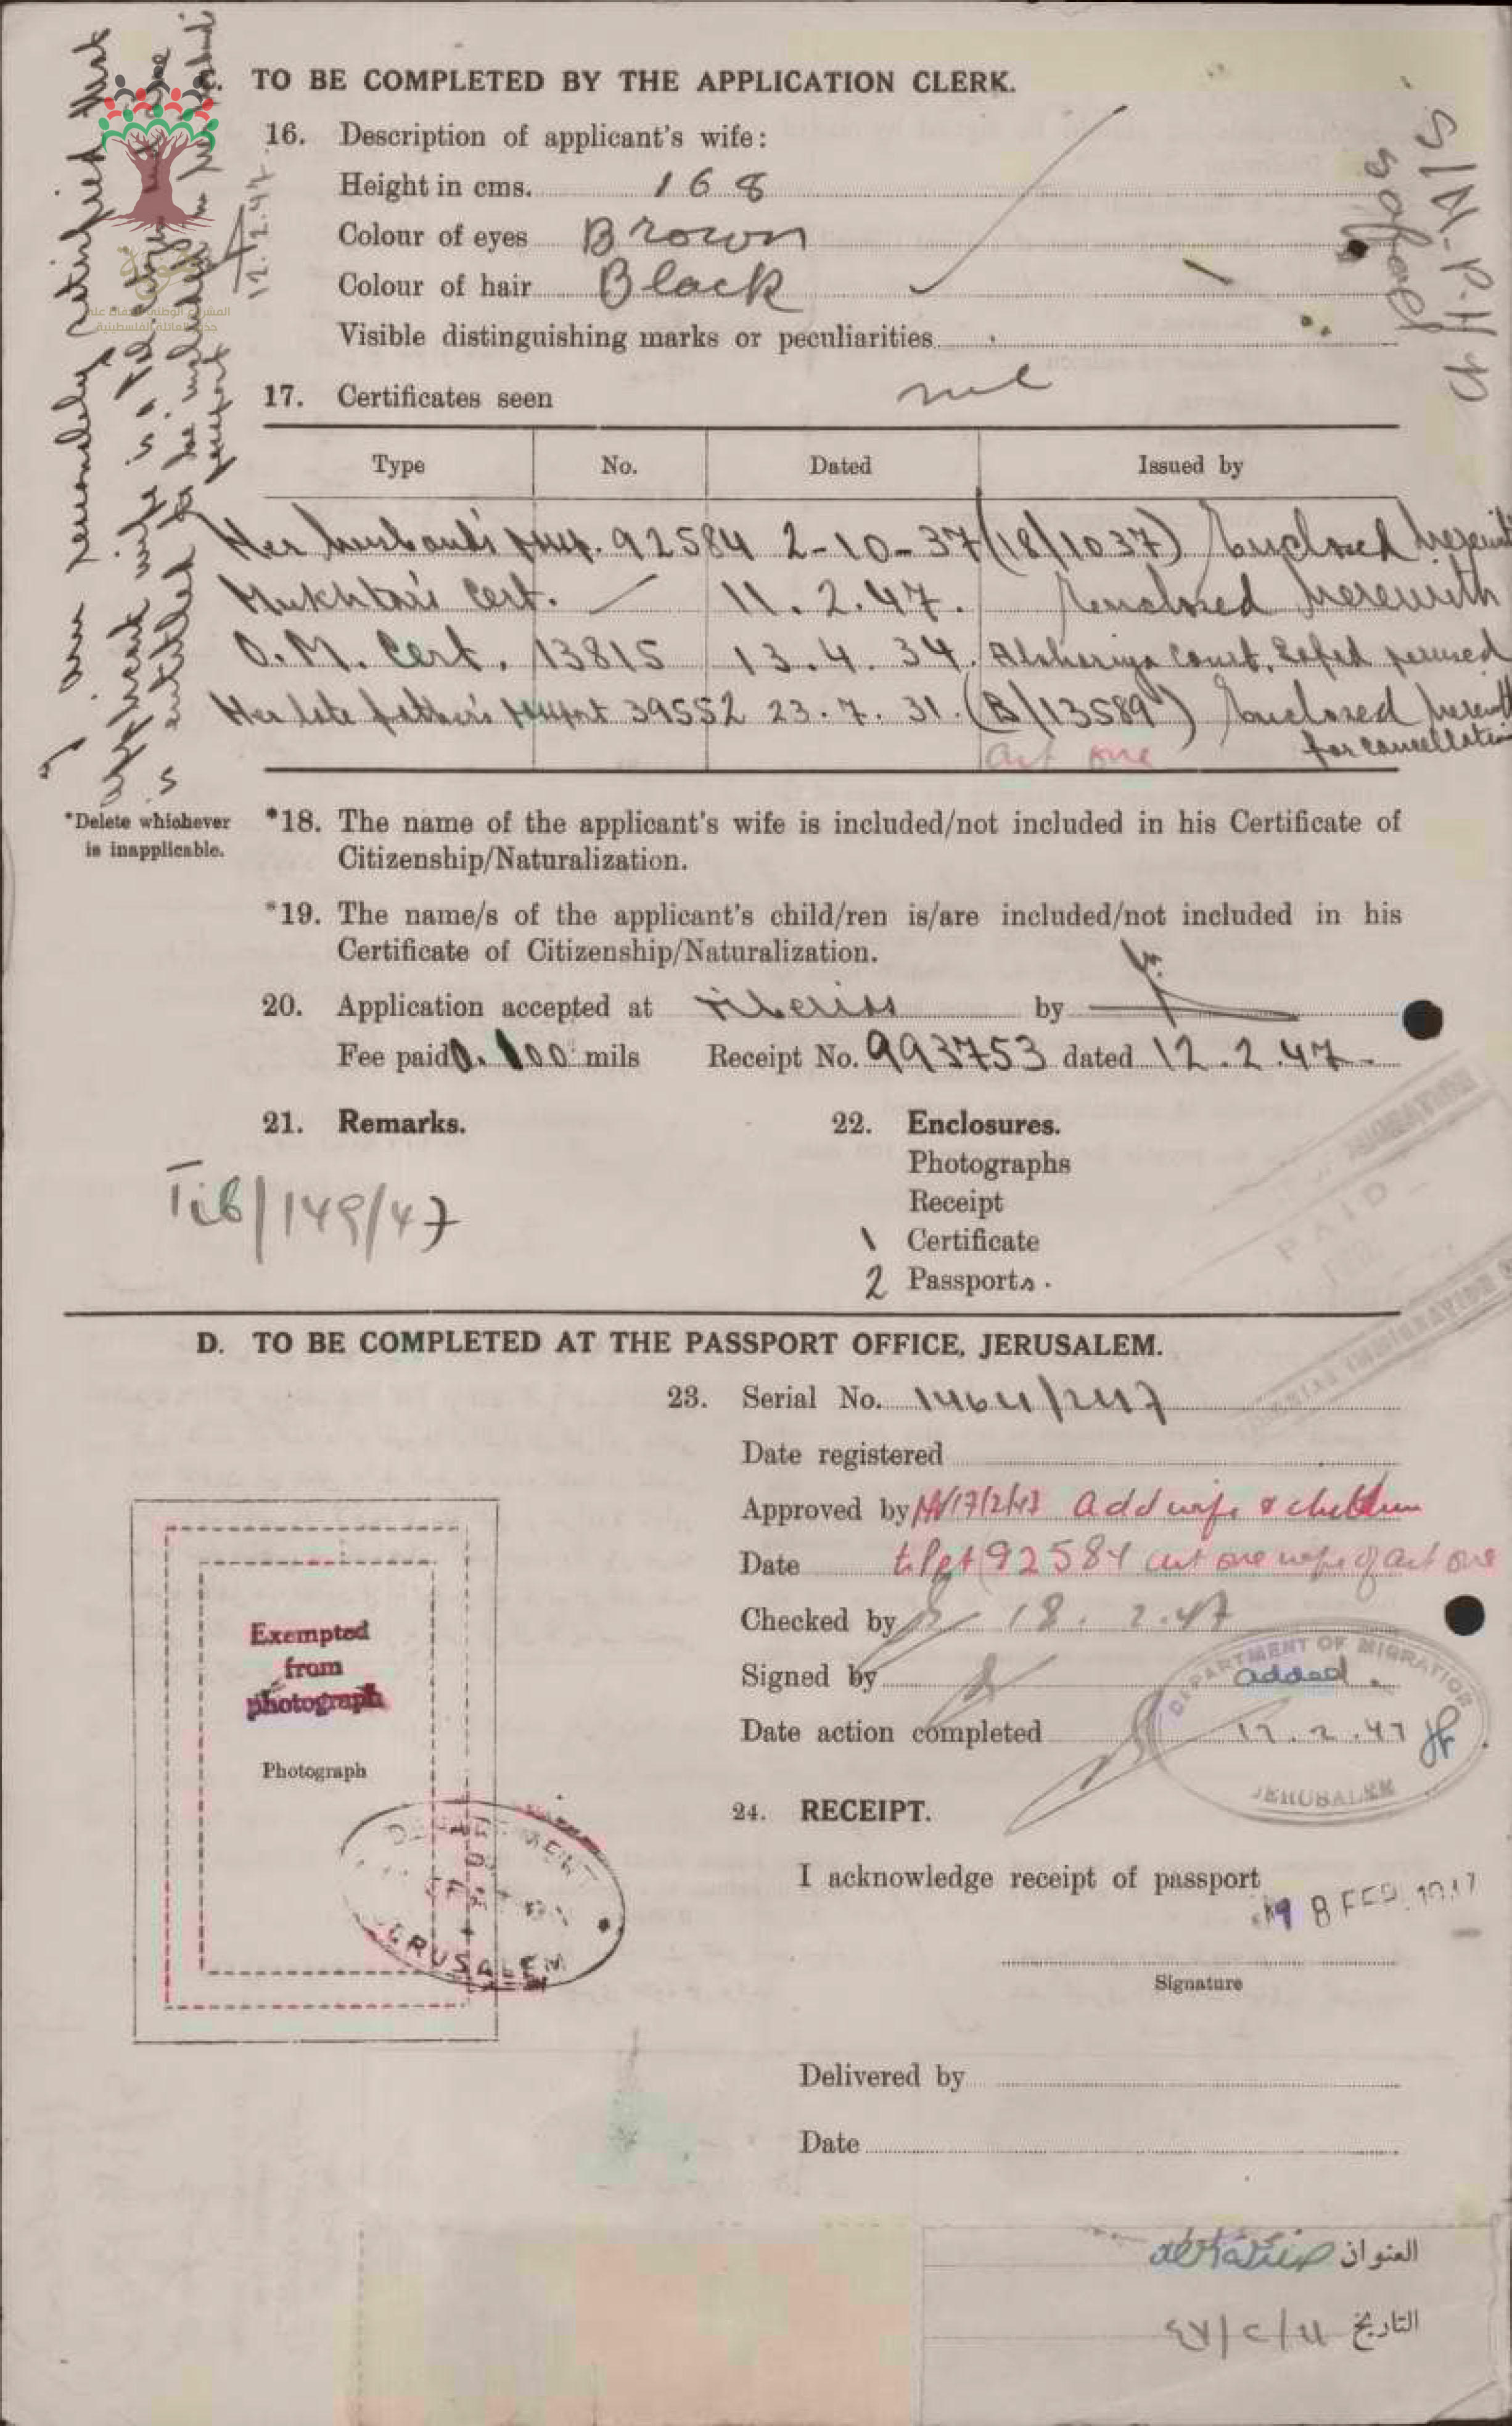 C. TO BE COMPLETED BY THE APPLICATION CLERK.
16. Description of applicant's wife:
Height in cms. 168
Colour of eyes Brown
Colour of hair Black
Visible distinguishing marks or peculiarities
nil
17. Certificates seen
Type No. Dated Issued by
Her husband's pass. 92584 2-10-37 (18/1037) Enclosed herewith
Mukhtar's Cert. 11.2.47. Enclosed herewith
O.M. Cert. 13815 13.4.34. Alshariya Court, Safed perused
Her late father's passport 39552 23.7.31. (B/13589) Enclosed herewith
for cancellation
art one
I am personally satisfied that
applicant's wife is a
is entitled to be included in
passport
12.2.47
Safed
*Delete whichever
is inapplicable.
*18. The name of the applicant's wife is included/not included in his Certificate of
Citizenship/Naturalization.
*19. The name/s of the applicant's child/ren is/are included/not included in his
Certificate of Citizenship/Naturalization.
20. Application accepted at Tiberias by
Fee paid 0.100 mils Receipt No. 993753 dated 12.2.47.
21. Remarks.
Tib/149/47
22. Enclosures.
Photographs
Receipt
1 Certificate
2 Passports.
PAID
D. TO BE COMPLETED AT THE PASSPORT OFFICE, JERUSALEM.
23. Serial No. 1464/247
Date registered
Approved by 17/2/47 Add wife & children
Date to Ppt 92584 art one wife of art one
Checked by 18.2.47
Signed by
Date action completed
DEPARTMENT OF MIGRATION
added.
17.2.47
JERUSALEM
Exempted
from
photograph
Photograph
DEPARTMENT
JERUSALEM
24. RECEIPT.
I acknowledge receipt of passport
18 FEB. 1947
Signature
Delivered by
Date
العنوان
التاريخ ١١/٢/٤٧